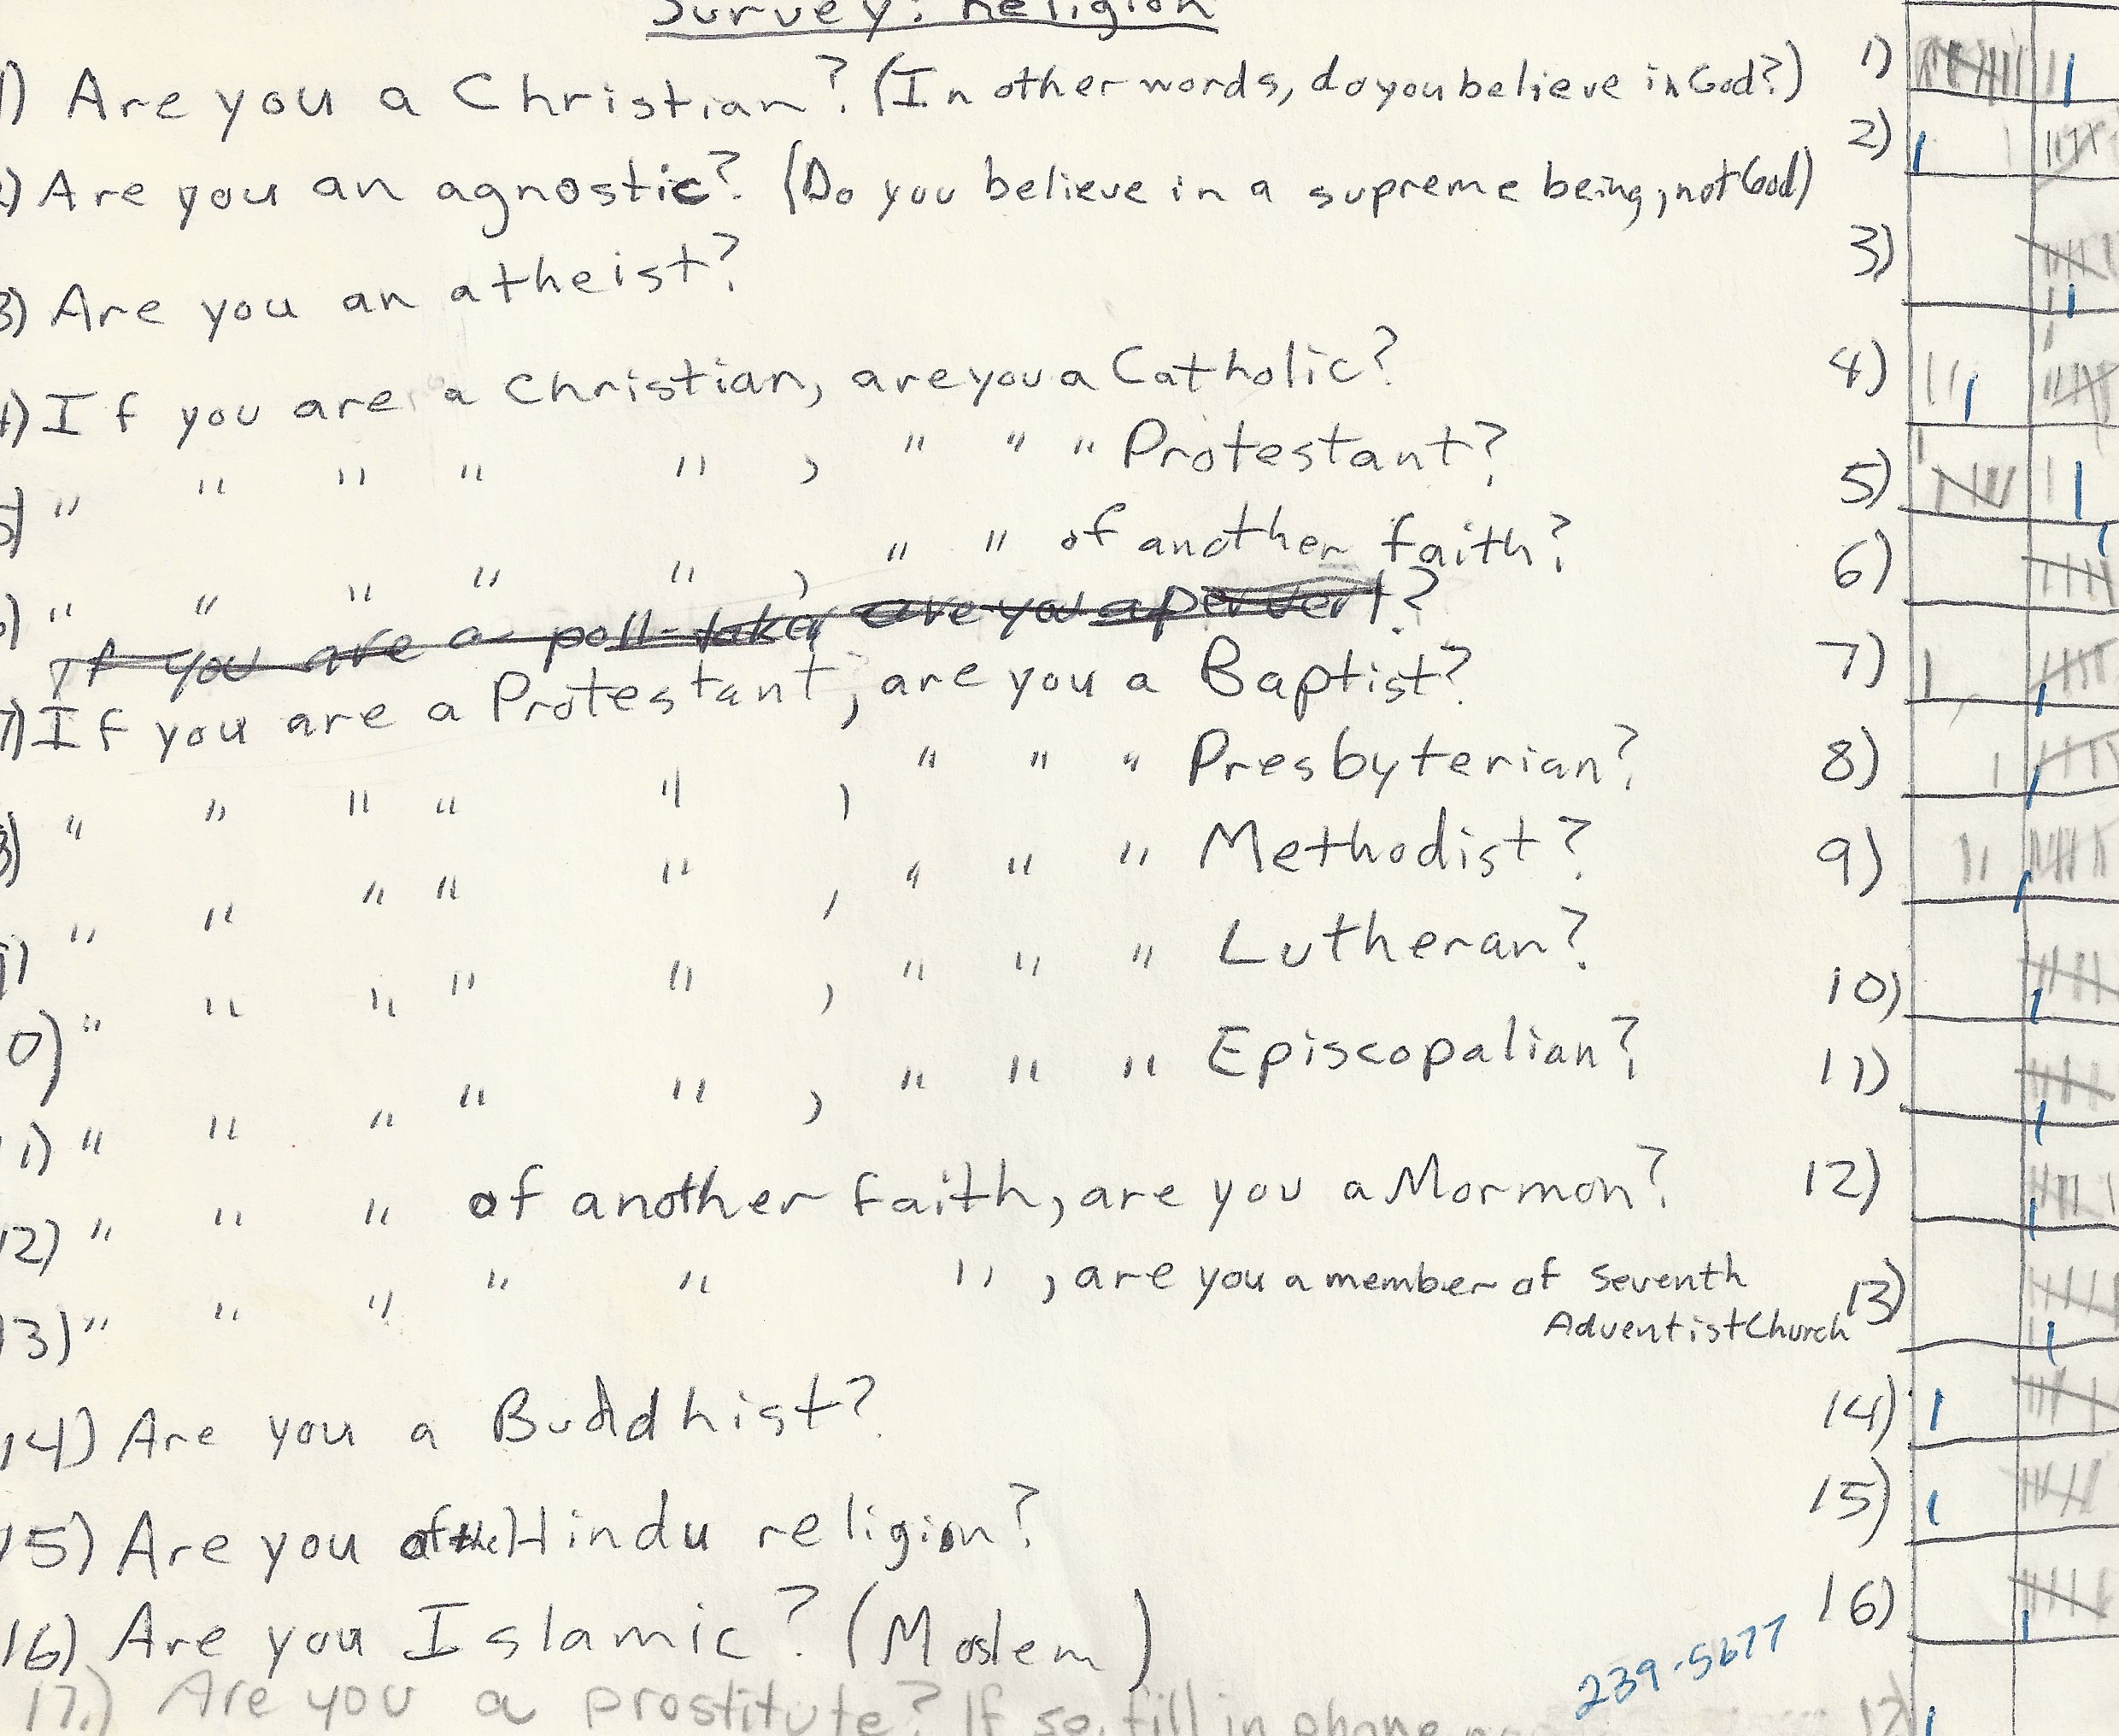 Survey: Religion
1) Are you a Christian? (In other words, do you believe in God?) 1)
2) Are you an agnostic? (Do you believe in a supreme being, not God) 2)
3) Are you an atheist? 3)
4) If you are a Christian, are you a Catholic? 4)
5) " " " " " , " " " Protestant? 5)
6) " " " " " , " " of another faith? 6)
If you are a poll-taker are you a pervert?
7) If you are a Protestant, are you a Baptist? 7)
8) " " " " " , " " " Presbyterian? 8)
9) " " " " " , " " " Methodist? 9)
10) " " " " " , " " " Lutheran? 10)
11) " " " " " , " " " Episcopalian? 11)
12) " " " of another faith, are you a Mormon? 12)
13) " " " " " " , are you a member of Seventh
Adventist Church 13)
14) Are you a Buddhist? 14)
15) Are you of the Hindu religion? 15)
16) Are you Islamic? (Moslem) 16)
239-5677
17.) Are you a prostitute? If so, fill in phone 17